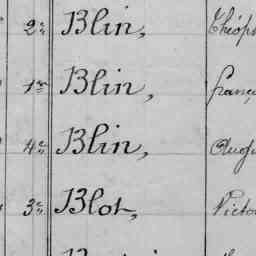 2e Blin, Théop
1er Blin, franç
4e Blin, Aug
3e Blot, Victo